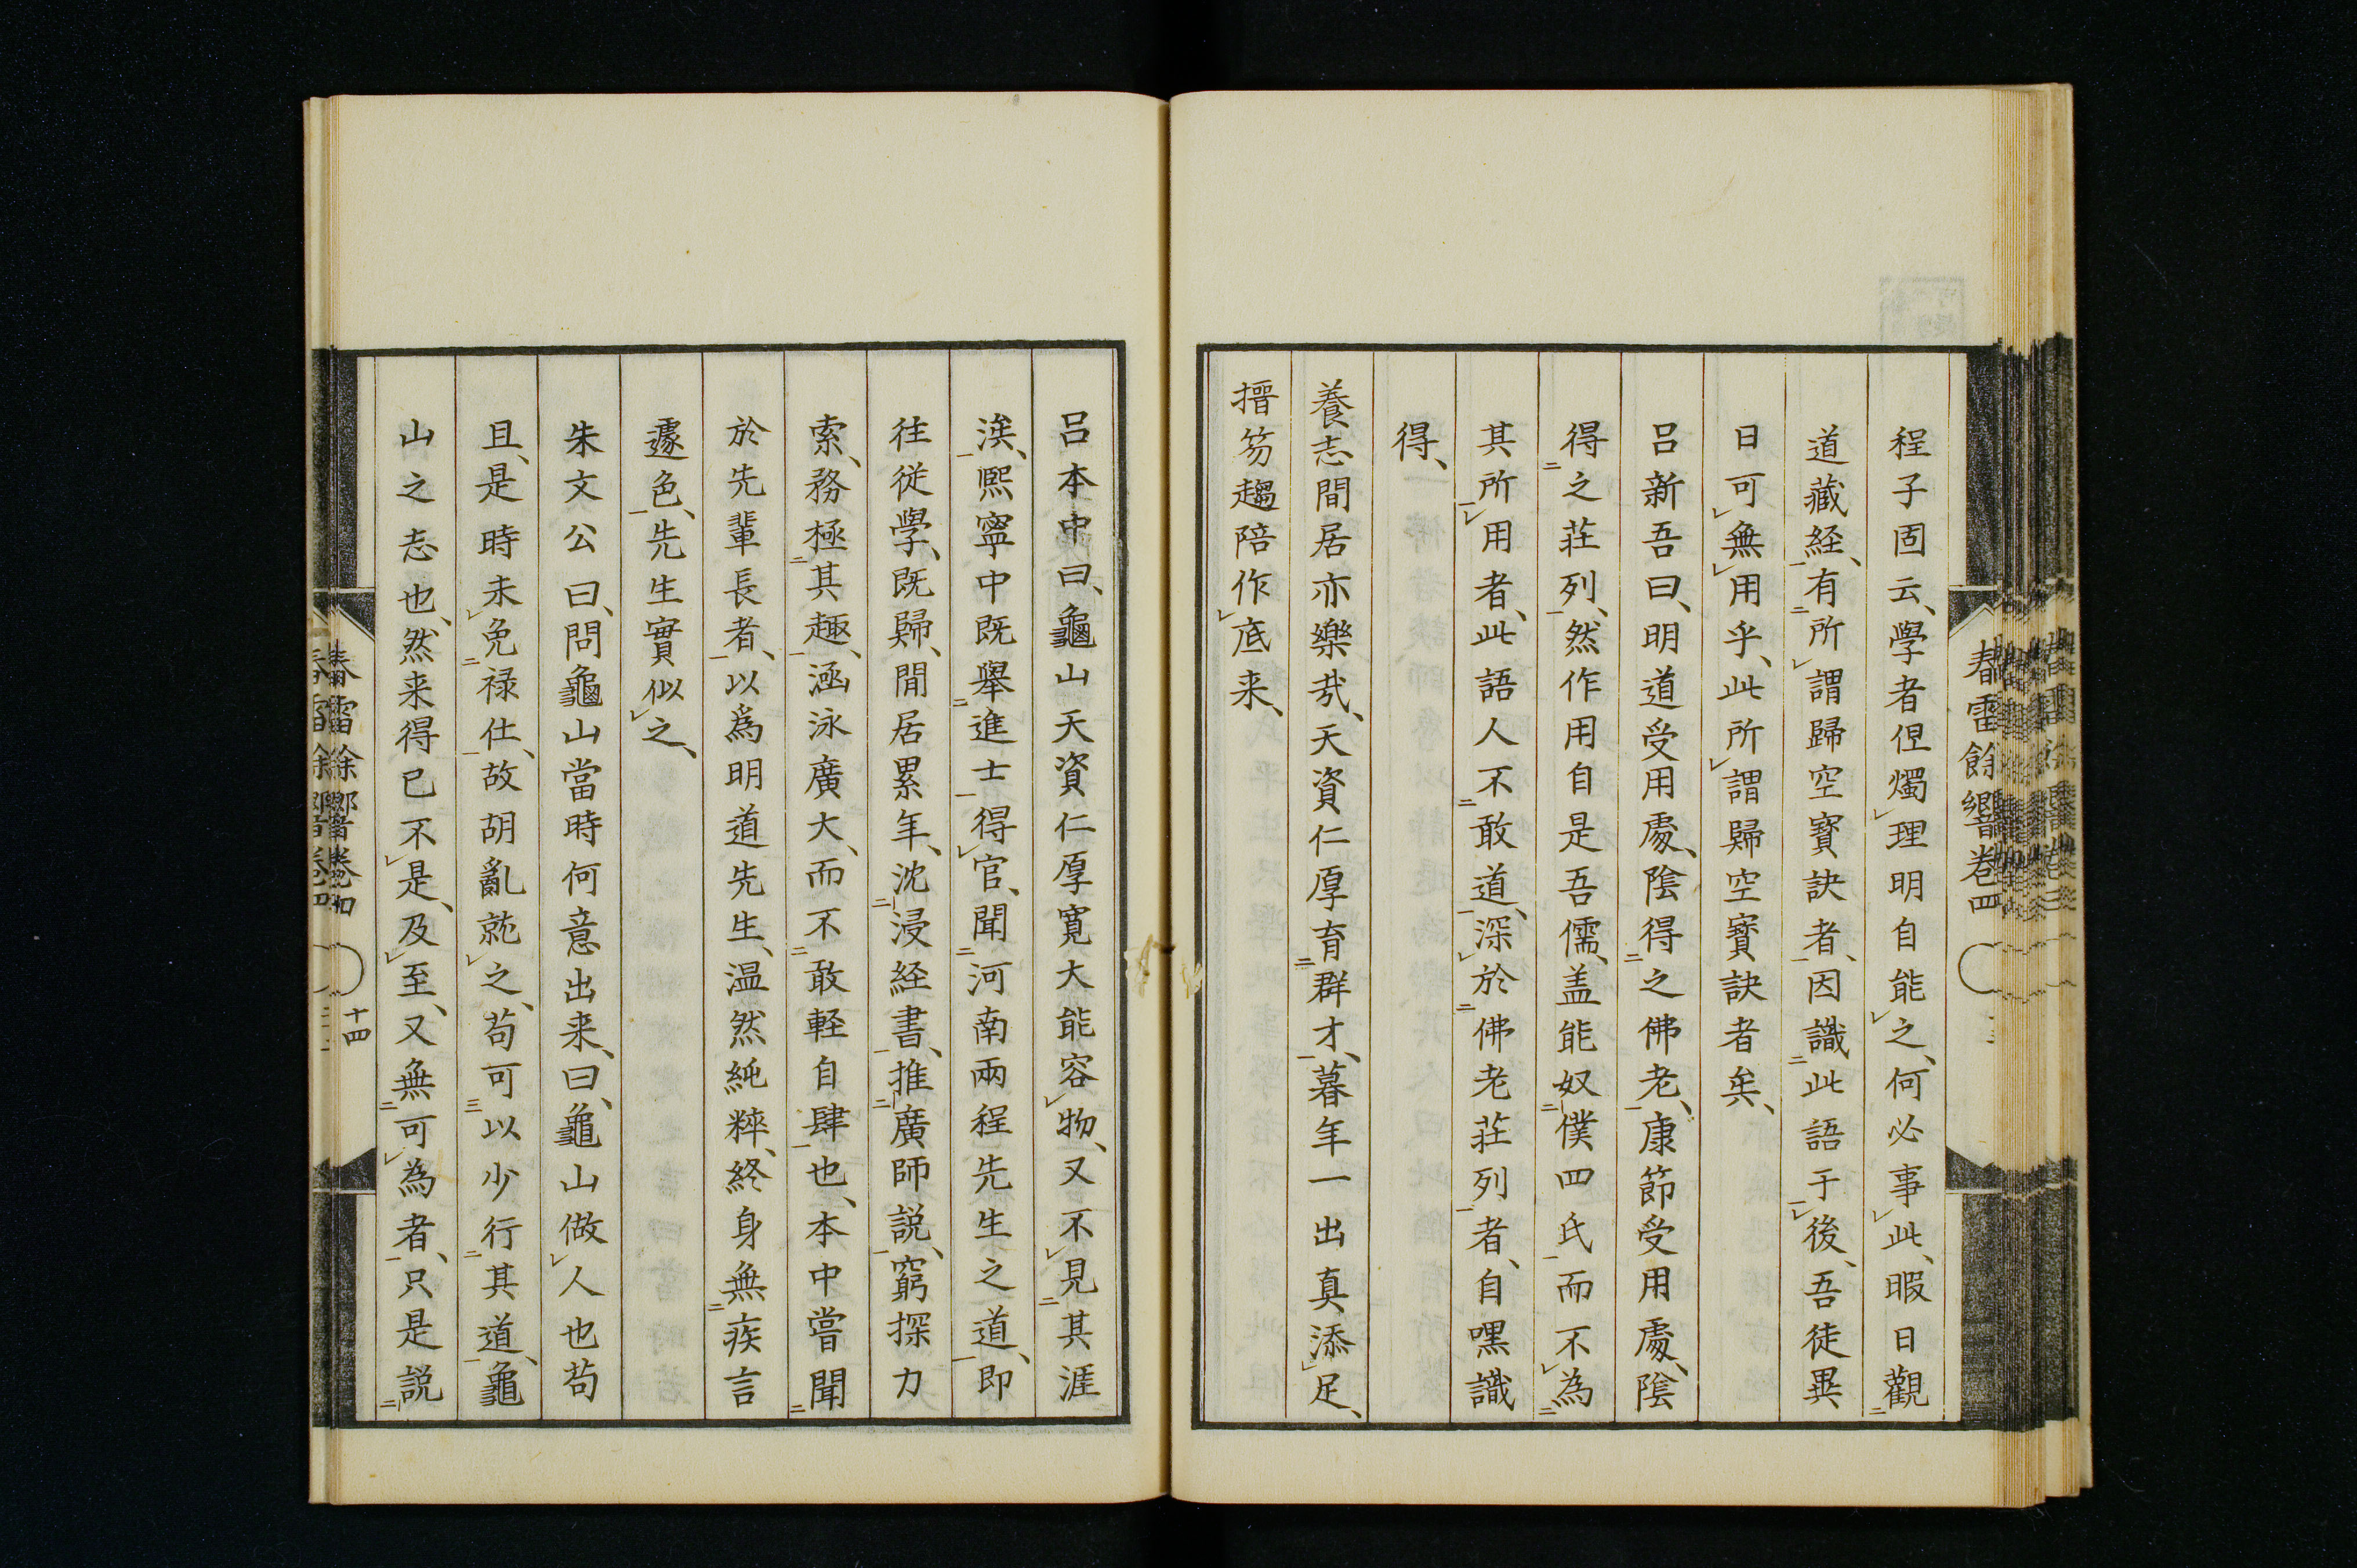 程子固云、學者但燭理明自能之、何必事此、暇日觀
道藏経、有所謂歸空寳訣者、因識此語于後、吾徒異
日可無用乎、此所謂歸空寳訣者矣、
呂新吾曰、明道受用處、陰得之佛老、康節受用處、陰
得之荘列、然作用自是吾儒、盖能奴僕四氏而不為
其所用者、此語人不敢道、深於佛老荘列者、自嘿識
得、
養志間居亦樂哉、天資仁厚育群才、暮年一出真添足、
搢笏趨陪作底来、
春雷餘響卷四
呂本中曰、龜山天資仁厚寛大能容物、又不見其涯
涘、熙寧中既舉進士得官、聞河南兩程先生之道、即
往従學、既歸、閒居累年、沈浸経書、推廣師説、窮探力
索、務極其趣、涵泳廣大、而不敢軽自肆也、本中嘗聞
於先輩長者、以爲明道先生、温然純粹、終身無疾言
遽色、先生實似之、
朱文公曰、問龜山當時何意出来、曰、龜山做人也苟
且、是時未免禄仕、故胡亂就之、苟可以少行其道、龜
山之志也、然来得已不是、及至、又無可為者、只是説
春雷餘響卷四
十四